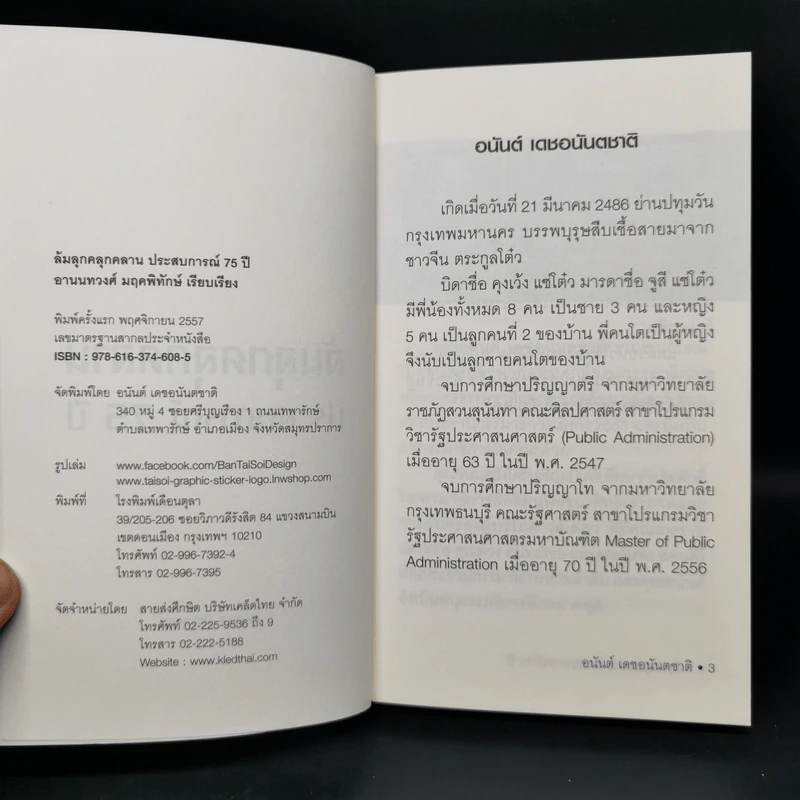 ล้มลุกคลุกคลาน ประสบการณ์ 75 ปี
อานนทวงศ์ มฤคพิทักษ์ เรียบเรียง
พิมพ์ครั้งแรก พฤศจิกายน 2557
เลขมาตรฐานสากลประจำหนังสือ
ISBN : 978-616-374-608-5
จัดพิมพ์โดย อนันต์ เดชอนันตชาติ
340 หมู่ 4 ซอยศรีบุญเรือง 1 ถนนเทพารักษ์
ตำบลเทพารักษ์ อำเภอเมือง จังหวัดสมุทรปราการ
รูปเล่ม www.facebook.com/BanTaiSoiDesign
www.taisoi-graphic-sticker-logo.lnwshop.com
พิมพ์ที่ โรงพิมพ์เดือนตุลา
39/205-206 ซอยวิภาวดีรังสิต 84 แขวงสนามบิน
เขตดอนเมือง กรุงเทพฯ 10210
โทรศัพท์ 02-996-7392-4
โทรสาร 02-996-7395
จัดจำหน่ายโดย สายส่งศึกษิต บริษัทเคล็ดไทย จำกัด
โทรศัพท์ 02-225-9536 ถึง 9
โทรสาร 02-222-5188
Website : www.kledthai.com
อนันต์ เดชอนันตชาติ
เกิดเมื่อวันที่ 21 มีนาคม 2486 ย่านปทุมวัน
กรุงเทพมหานคร บรรพบุรุษสืบเชื้อสายมาจาก
ชาวจีน ตระกูลโต๋ว
บิดาชื่อ คุงเว้ง แซ่โต๋ว มารดาชื่อ จูสี แซ่โต๋ว
มีพี่น้องทั้งหมด 8 คน เป็นชาย 3 คน และหญิง
5 คน เป็นลูกคนที่ 2 ของบ้าน พี่คนโตเป็นผู้หญิง
จึงนับเป็นลูกชายคนโตของบ้าน
จบการศึกษาปริญญาตรี จากมหาวิทยาลัย
ราชภัฏสวนสุนันทา คณะศิลปศาสตร์ สาขาโปรแกรม
วิชารัฐประศาสนศาสตร์ (Public Administration)
เมื่ออายุ 63 ปี ในปี พ.ศ. 2547
จบการศึกษาปริญญาโท จากมหาวิทยาลัย
กรุงเทพธนบุรี คณะรัฐศาสตร์ สาขาโปรแกรมวิชา
รัฐประศาสนศาสตรมหาบัณฑิต Master of Public
Administration เมื่ออายุ 70 ปี ในปี พ.ศ. 2556
อนันต์ เดชอนันตชาติ • 3